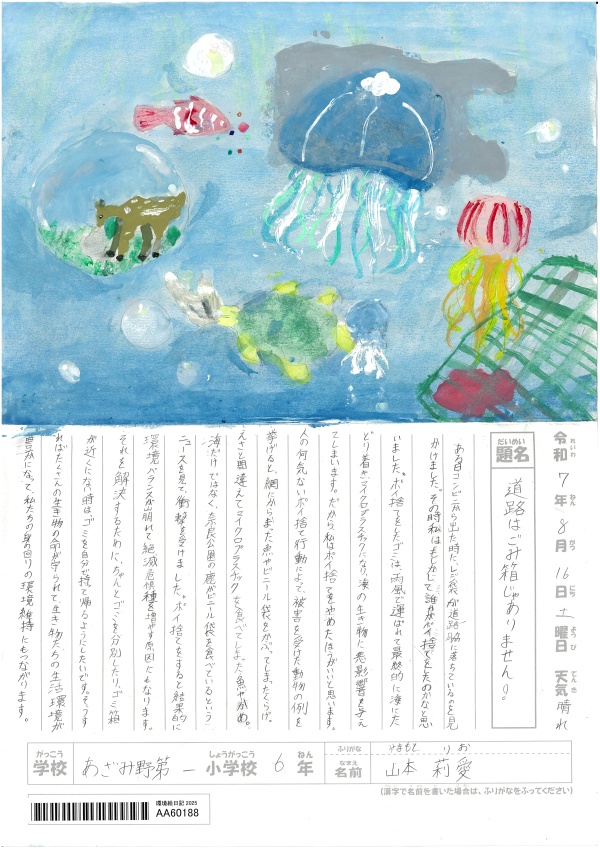 令和7年8月16日土曜日 天気晴れ
題名 道路はごみ箱じゃありません。
ある日コンビニから出た時に、レジ袋が道路脇に落ちているのを見
かけました。その時私は、もしかして誰かがポイ捨てをしたのかなと思
いました。ポイ捨てをしたゴミは、雨風で運ばれて最終的に海にた
どり着きマイクロプラスチックになり、海の生き物に悪影響を与え
てしまいます。だから私はポイ捨てをやめたほうがいいと思います。
人の何気ないポイ捨て行動によって、被害を受けた動物の例を
挙げると、網にからまった魚やビニール袋をかぶってしまったくらげ、
えさと間違えてマイクロプラスチックを食べてしまった魚やかめ。
海だけではなく、奈良公園の鹿がビニール袋を食べているという
ニュースを見て、衝撃を受けました。ポイ捨てをすると結果的に
環境バランスが崩れて絶滅危惧種を増やす原因にもなります。
それを解決するために、ちゃんとゴミを分別したり、ゴミ箱
が近くにない時は、ゴミを自分で持ち帰るようにしたいです。そうす
ればたくさんの生き物の命が守られて生き物たちの生活環境が
豊かになって、私たちの身の回りの環境維持にもつながります。
学校 あざみ野第一小学校 6年
ふりがな やまもと りお
名前 山本 莉愛
(漢字で名前を書いた場合は、ふりがなをふってください)
環境絵日記 2025
AA60188